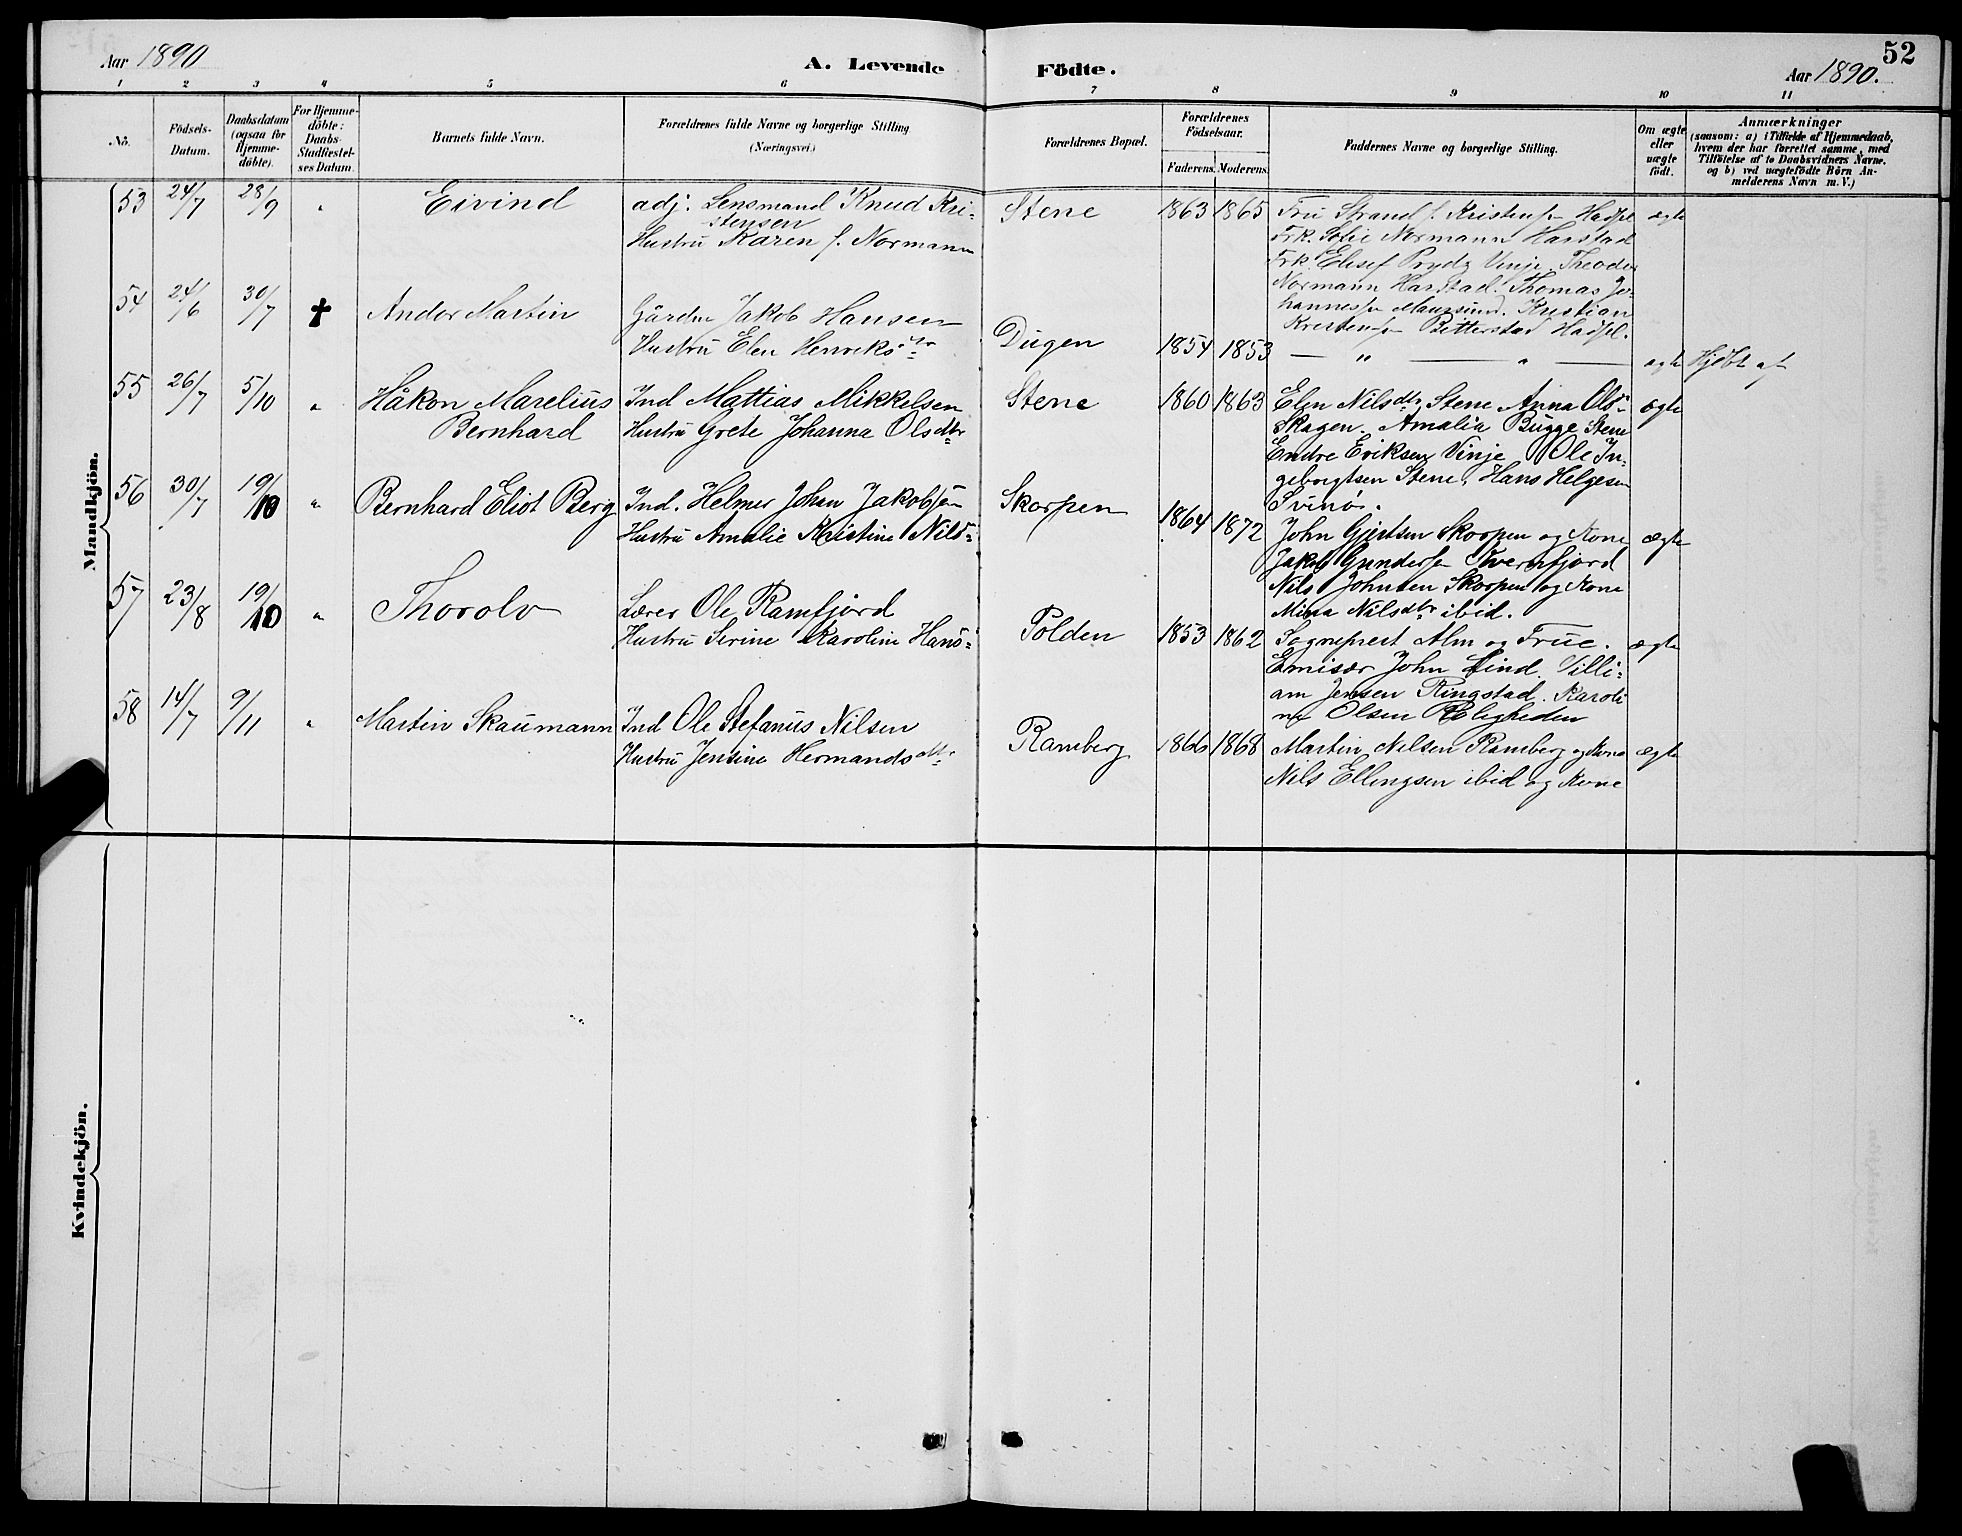 Aar 1890
A. Levende
Födte.
52
Aar 1890.
1 2 3 4 5 6 7 8 9 10 11
No.
Födsels-
Datum.
Daabsdatum
(ogsaa for
Hjemme-
döbte).
For Hjemme-
döbte:
Daabs-
Stadfæstel-
ses Datum.
Barnets fulde Navn.
Forældrenes fulde Navne og borgerlige Stilling
(Næringsvei.)
Forældrenes Bopæl.
Forældrenes
Födselsaar.
Faderens. Moderens.
Faddernes Navne og borgerlige Stilling.
Om ægte
eller
uægte
født.
Anmærkninger
(saasom: a) i Tilfælde af Hjemmedaab,
hvem der har forrettet samme, med
Tilföielse af to Daabsvidners Navne.
og b) ved uægtefödte Börn An-
melderens Navn m. V.)
Mandkjön.
53 24/7 28/9 " Eivind
adj. Lensmand Knud Kri-
stensen
Hustru Karen f. Normann
Stene 1863 1865
Fru Strand f. Kristensen Hadsel
Frk. Sofie Normann Harstad
Frk. Elisef Prydz Vinje, Theodor
Normann Harstad. Thomas Jo-
hannessen Maursund. Kristian
Kristensen Bitterstad Hadsel.
ægte
54 24/6 30/7 ✝ Andor Martin
Gårdm Jakob Hansen
Hustru Elen Henriksdtr
Digen 1854 1853 — " — " — ægte Hjdöbt af
55 26/7 5/10 " Håkon Marelius
Bernhard
Ind Mattias Mikkelsen
Hustru Grete Johanna Olsdtr
Stene 1860 1863
Elen Nilsdtr Stene Anna Ols-
Skagen. Amalia Bugge Stene
Endre Eriksen Vinje Ole In-
geborgtsen Stene, Hans Helgesen
Svinøi.
ægte
56 30/7 19/10 " Bernhard Eliot Berg
Ind. Helmer Johan Jakobsen
Hustru Amalie Kristine Nils-
Skorpen 1864 1872
John Gjertsen Skorpen og Kone
Jakob Gundersen Tverrfjord
Nils Johnsen Skorpen og Kone
Mina Nilsdtr ibid.
ægte
57 23/8 19/10 " Thorolv
Lærer Ole Ramfjord
Hustru Serine Karoline Hans-
Polden 1853 1862
Sogneprest Alm og Frue.
Emisær John Lind. Villi-
am Jensen Ringstad. Karoli
ne Olsen Roligheden
ægte
58 14/7 9/11 " Martin Skaumann
Ind Ole Stefanus Nilsen
Hustru Jensine Hermandsdtr
Ramberg 1866 1868
Martin Nilsen Ramberg og Kone
Nils Ellingsen ibid og Kone
ægte
Kvindekjön.